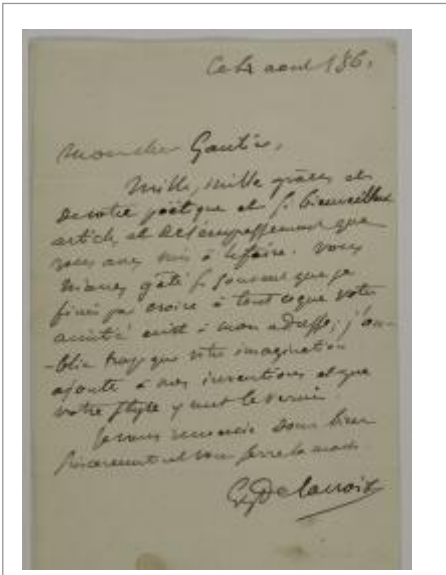 Ce 4 août 186
Mon cher Gautier,
Mille, mille grâces et
de votre poëtique et si bienveillant
article et de l'empressement que
vous avez mis à le faire. Vous
m'avez gâté si souvent que je
finis par croire à tout ce que votre
amitié écrit à mon adresse; j'ou-
-blie trop que votre imagination
ajoute à mes inventions et que
votre style y met le vernis.
Je vous remercie donc bien
sincèrement et vous serre la main.
Eug Delacroix